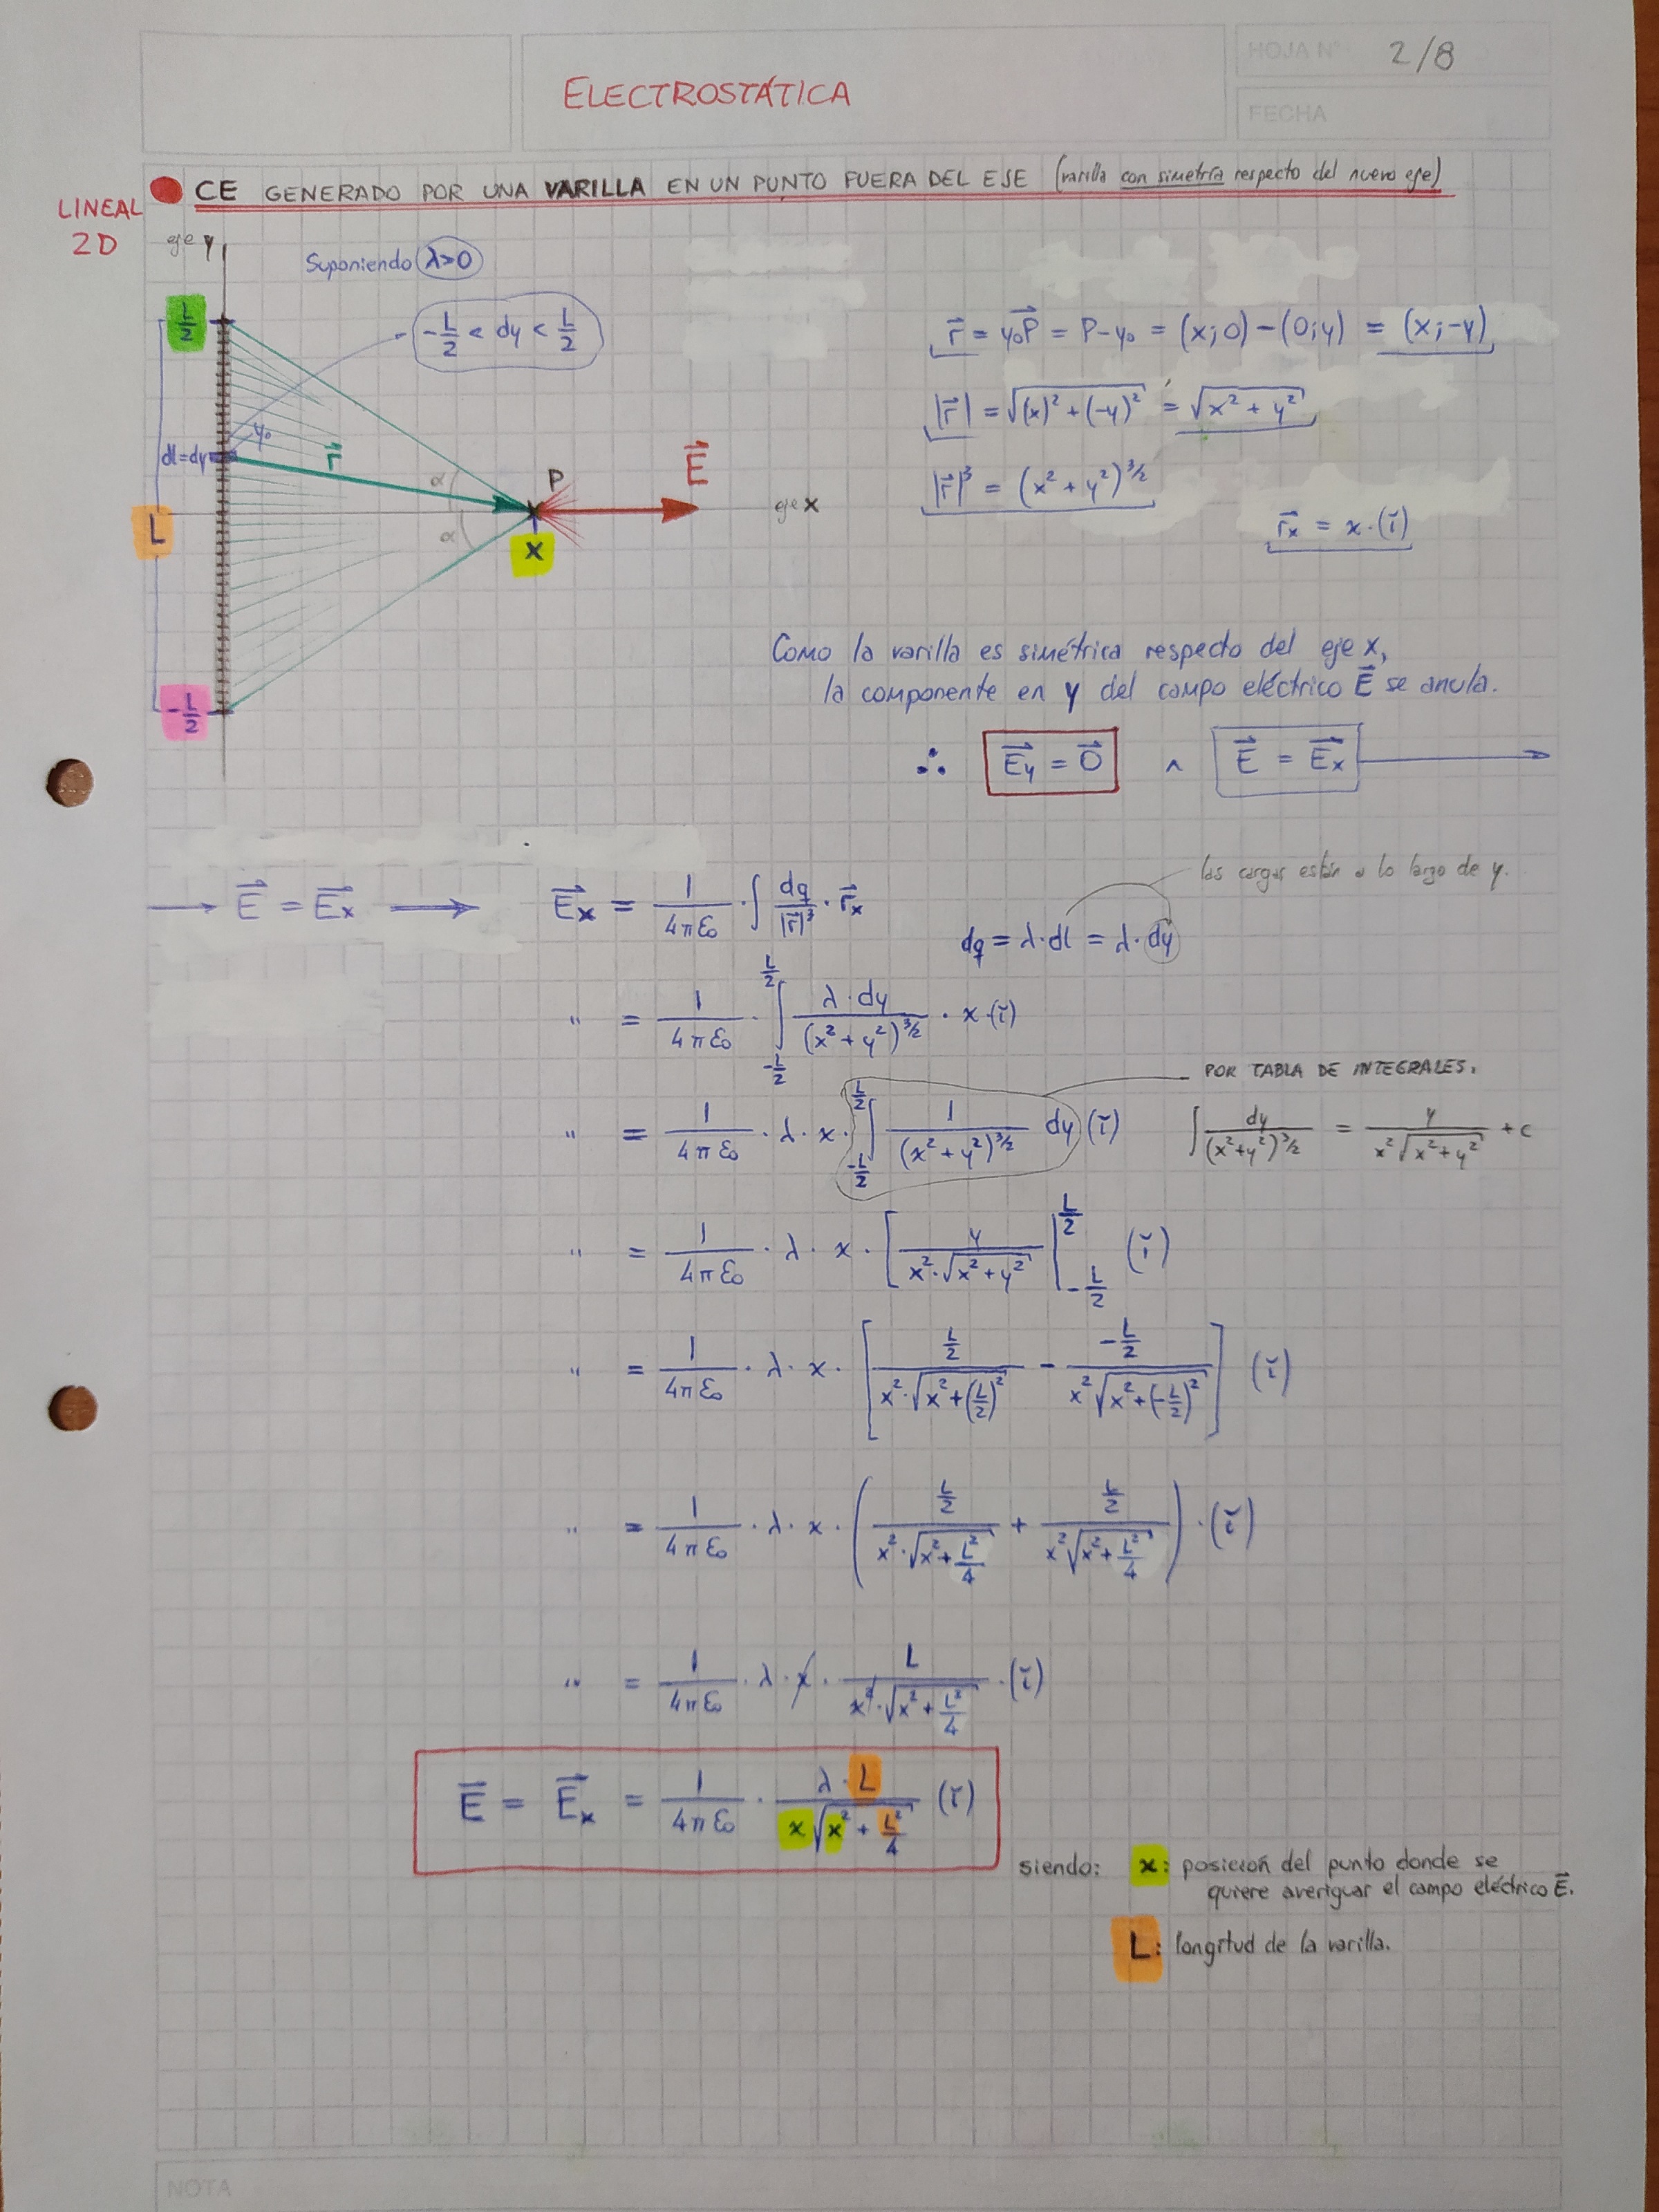 HOJA N° 2/8
ELECTROSTÁTICA
FECHA
LINEAL 2D
CE GENERADO POR UNA VARILLA EN UN PUNTO FUERA DEL EJE (varilla con simetría respecto del nuevo eje)
eje y
Suponiendo λ>0
L/2
-L/2 < dy < L/2
y₀
dl=dy
r⃗
α
P
E⃗
eje x
L
α
x
-L/2
r⃗ = y₀P⃗ = P-y₀ = (x;0)-(0;y) = (x;-y)
|r⃗| = √((x)²+(-y)²) = √(x²+y²)
|r⃗|³ = (x²+y²)^(3/2)
r⃗x = x·(ĭ)
Como la varilla es simétrica respecto del eje x,
la componente en y del campo eléctrico E⃗ se anula.
∴ E⃗y = 0⃗ ^ E⃗ = E⃗x →
las cargas están a lo largo de y.
→ E⃗ = E⃗x → E⃗x = 1/(4πε₀) · ∫ dq/|r⃗|³ · r⃗x
dq = λ·dl = λ·dy
" = 1/(4πε₀) · ∫_{-L/2}^{L/2} λ·dy/(x²+y²)^(3/2) · x·(ĭ)
POR TABLA DE INTEGRALES.
" = 1/(4πε₀) · λ · x · ∫_{-L/2}^{L/2} 1/(x²+y²)^(3/2) dy (ĭ)
∫ dy/(x²+y²)^(3/2) = y/(x²√(x²+y²)) + c
" = 1/(4πε₀) · λ · x · [y/(x²·√(x²+y²))|_{-L/2}^{L/2} (ĭ)
" = 1/(4πε₀) · λ · x · [(L/2)/(x²·√(x²+(L/2)²)) - (-L/2)/(x²√(x²+(-L/2)²))] (ĭ)
" = 1/(4πε₀) · λ · x · ((L/2)/(x²·√(x²+L²/4)) + (L/2)/(x²√(x²+L²/4))) · (ĭ)
" = 1/(4πε₀) · λ · x · L/(x²·√(x²+L²/4)) · (ĭ)
E⃗ = E⃗x = 1/(4πε₀) · λ·L/(x√(x²+L²/4)) (ĭ)
siendo: x: posición del punto donde se
quiere averiguar el campo eléctrico E⃗.
L: longitud de la varilla.
NOTA